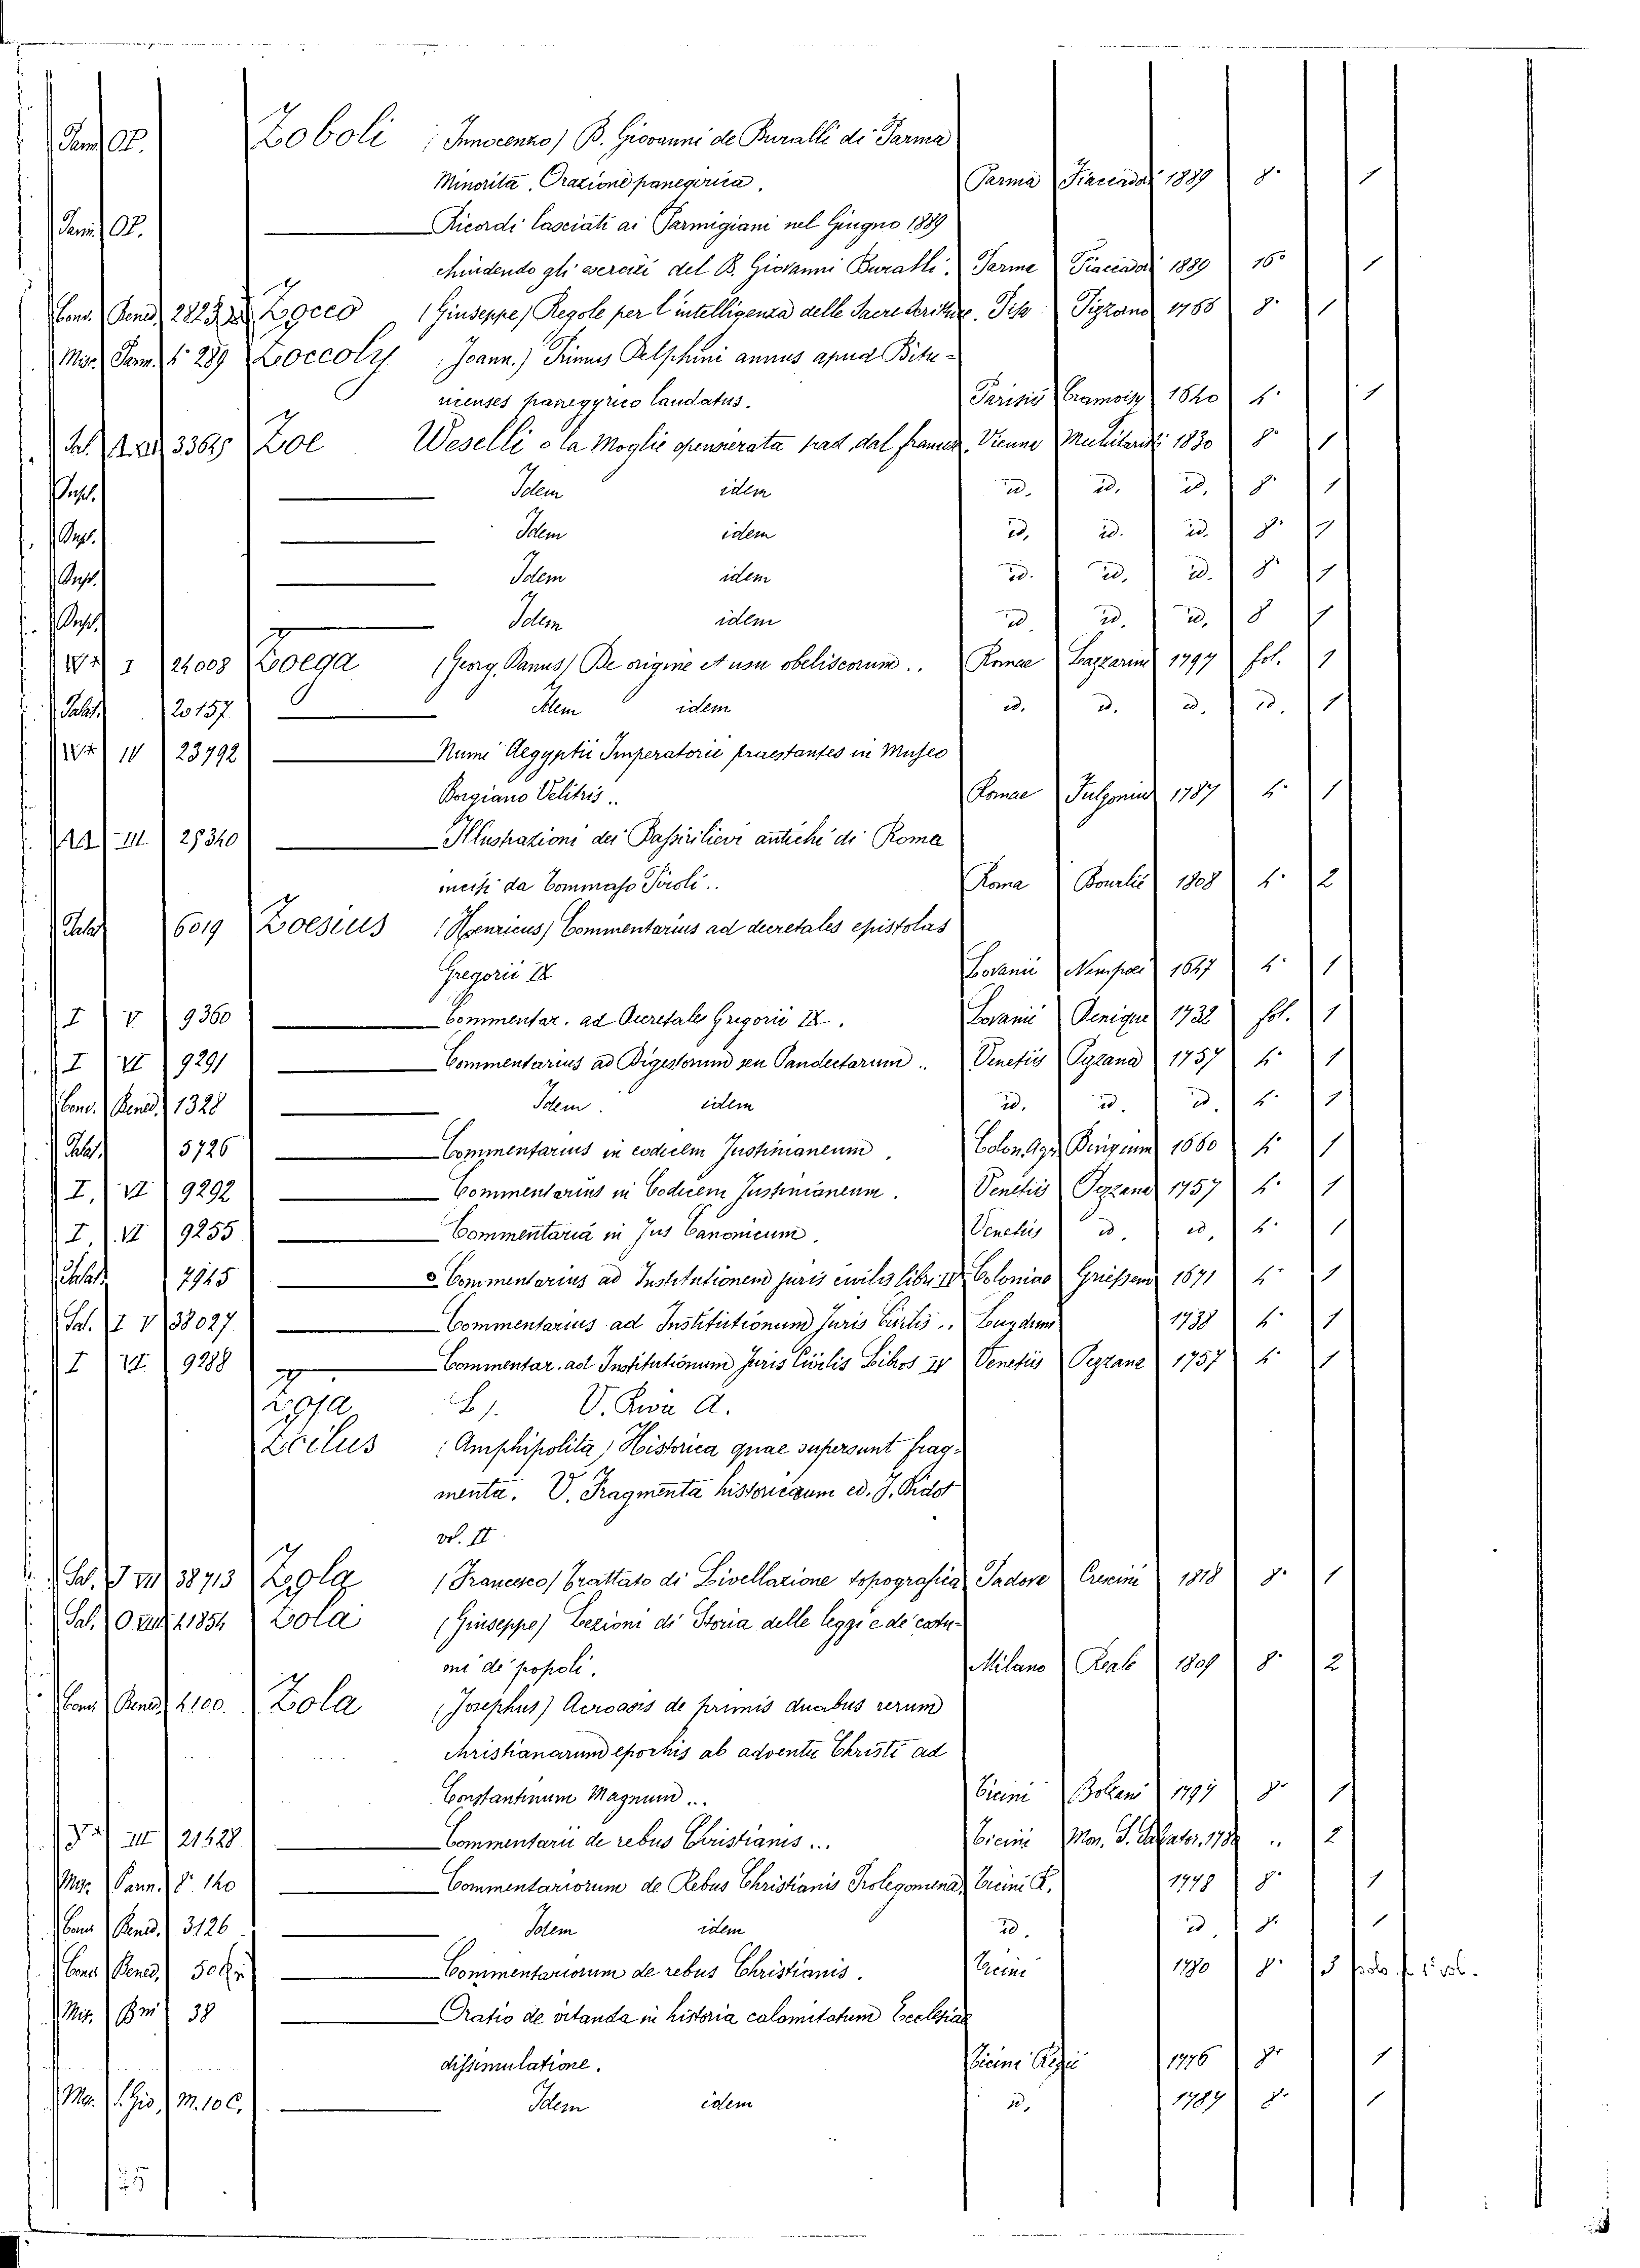 Zoboli (Innocenzo) B. Giovanni de Buralli di Parma
Minorita, Orazione panegirica. Parma Fiaccadori 1889 8° 1
Ricordi lasciati ai Parmigiani nel Giugno 1889
chiudendo gli esercizi del B. Giovanni Buralli. Parma Fiaccadori 1889 16° 1
Cons. Bened. 2823 Zocco (Giuseppe) Regole per l'intelligenza delle Sacre Scritture. Pisa Pizzorno 1766 8° 1
Misc. Parm. 4° 289 Zoccoly Joann.) Primus Delphini annus apud Bitu-
ricenses panegyrico laudatus. Parisiis Cramoisy 1640 4° 1
Sal. 33645 Zoe Weselli o la Moglie spensierata trad. dal franc. Vienna 1830 8° 1
Dupl. Idem idem id. id. id. 8° 1
Dupl. Idem idem id. id. id. 8° 1
Dupl. Idem idem id. id. id. 8° 1
Dupl. Idem idem id. id. id. 8 1
I 24008 Zoega (Georg, Danus) De origine et usu obeliscorum.. Romae Lazzarini 1797 fol. 1
Palat. 20157 Idem idem id. id. id. id. 1
IV 23792 Numi Aegyptii Imperatorii praestantes in Museo
Borgiano Velitris.. Romae Fulgonius 1787 4° 1
III 28340 Illustrazioni dei Bassirilievi antichi di Roma
incisi da Tommaso Piroli.. Roma Bourlié 1808 4° 2
Palat. 6019 Zoesius (Henricus) Commentarius ad decretales epistolas
Gregorii IX Lovanii Nempaei 1647 4° 1
I V 9360 Commentar. ad Decretales Gregorii IX. Lovanii Denique 1732 fol. 1
I VI 9291 Commentarius ad Digestorum seu Pandectarum.. Venetiis Pezzana 1757 4° 1
Cons. Bened. 1328 Idem idem id. id. id. 4° 1
Palat. 5726 Commentarius in codicem Justinianeum. Colon. Agr. 1660 4° 1
I. VI 9292 Commentarius in Codicem Justinianeum. Venetiis Pezzana 1757 4° 1
I. VI 9255 Commentaria in Jus Canonicum. Venetiis id. id. 4° 1
Palat. 7945 Commentarius ad Institutionum juris civilis libri IV Coloniae 1671 4° 1
Sal. I V 38027 Commentarius ad Institutionum Juris Civilis.. Lugduni 1738 4° 1
I VI. 9288 Commentar. ad Institutionum Juris Civilis Libros IV Venetiis Pezzana 1757 4° 1
L). V. Zwa A.
Zoilus (Amphipolita) Historica quae supersunt frag-
menta. V. Fragmenta historicorum ed. J. Didot
vol. II
Sal. 38713 Zola (Francesco) Trattato di Livellazione topografica Padova Crescini 1818 8° 1
Sal. 41854 Zola (Giuseppe) Lezioni di Storia delle leggi e de' costu-
mi de' popoli. Milano Reale 1809 8° 2
Cons. Bened. 4100. Zola (Josephus) Acroasis de primis duabus rerum
christianarum epochis ab adventu Christi ad
Constantinum Magnum... Ticini Bolzani 1797 8° 1
III 21428 Commentarii de rebus Christianis... Ticini Mon. S. Salvator. .. 2
Misc. Parm. 8° 140 Commentariorum de Rebus Christianis Prolegomena Ticini R. 1779 8° 1
Cons. Bened. 3126 Idem idem id. id. 8° 1
Cons. Bened. Commentariorum de rebus Christianis. Ticini 1780 8°
Mis. 38 Oratio de vitanda in historia calamitatum Ecclesiae
dissimulatione. Ticini Regii 1776 8° 1
M. 10 C. Idem idem id. 1787 8° 1
25